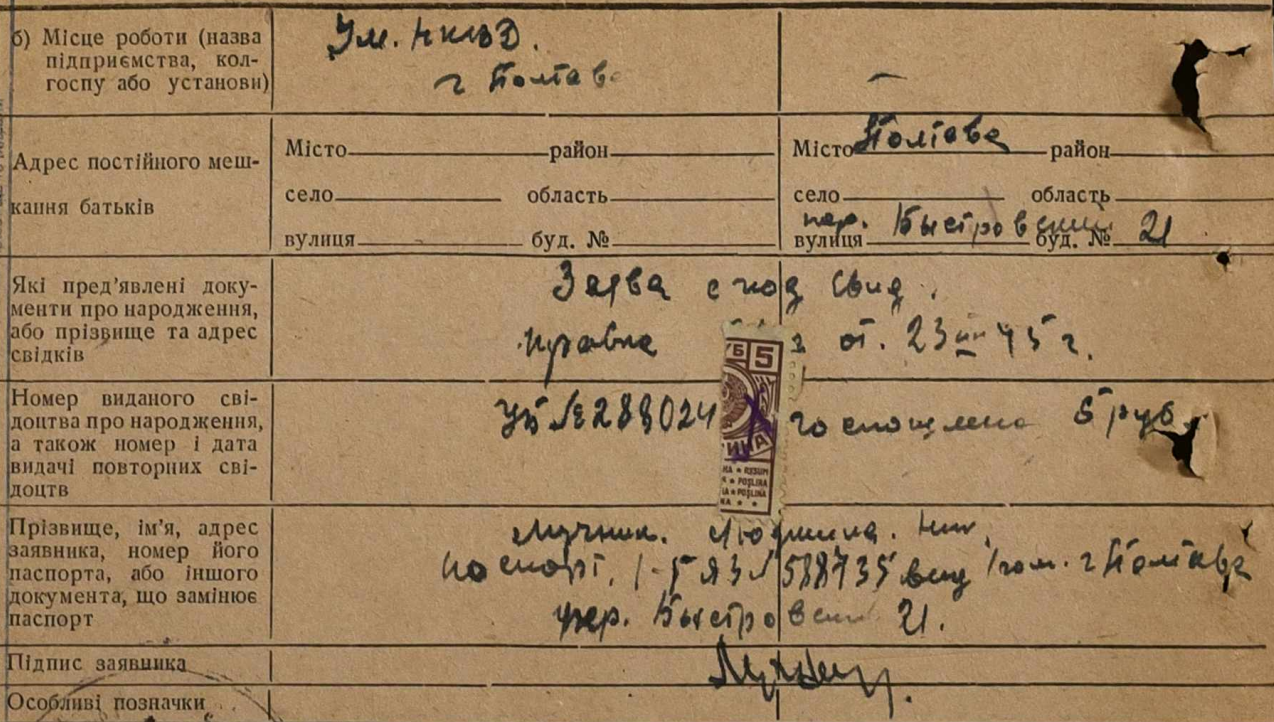 б) Місце роботи (назва
підприємства, кол-
госпу або установи)
Ум. НКВД.
г Полтава
—
Адрес постійного меш-
кання батьків
Місто район
село область
вулиця буд. №
Місто Полтава район
село область
пер. Быстровский 21
вулиця буд. №
Які пред'явлені доку-
менти про народження,
або прізвище та адрес
свідків
Заява свид.
от. 23 45 г.
Номер виданого сві-
доцтва про народження,
а також номер і дата
видачі повторних сві-
доцтв
УБ № 289024 5 руб.
УБ 5
ИНА
НА ★ RUSUM
★ POŞLINA
А ★ POŞLINA
КА ★ ★
Прізвище, ім'я, адрес
заявника, номер його
паспорта, або іншого
документа, що замінює
паспорт
Лучник. Людмила. Ник.
паспорт. 588735 выд г Полтава
пер. Быстровский 21.
Підпис заявника
Особливі позначки